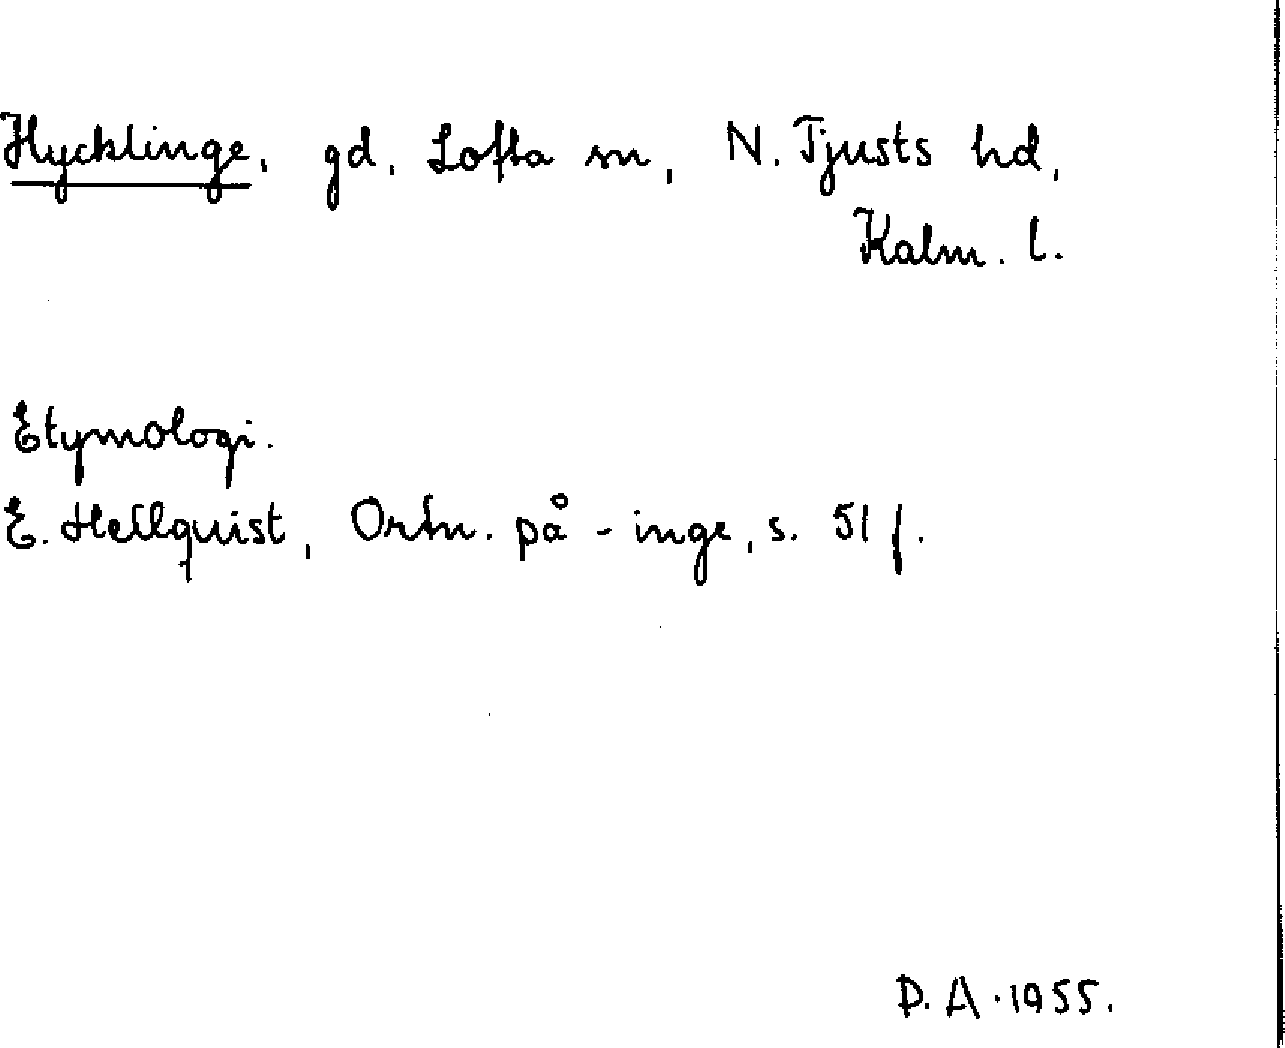 Hycklinge, gd, Lofta sn, N. Tjusts hd,
Kalm. l.
Etymologi.
E. Hellquist, Ortn. på -inge, s. 51 f.
D. A. 1955.